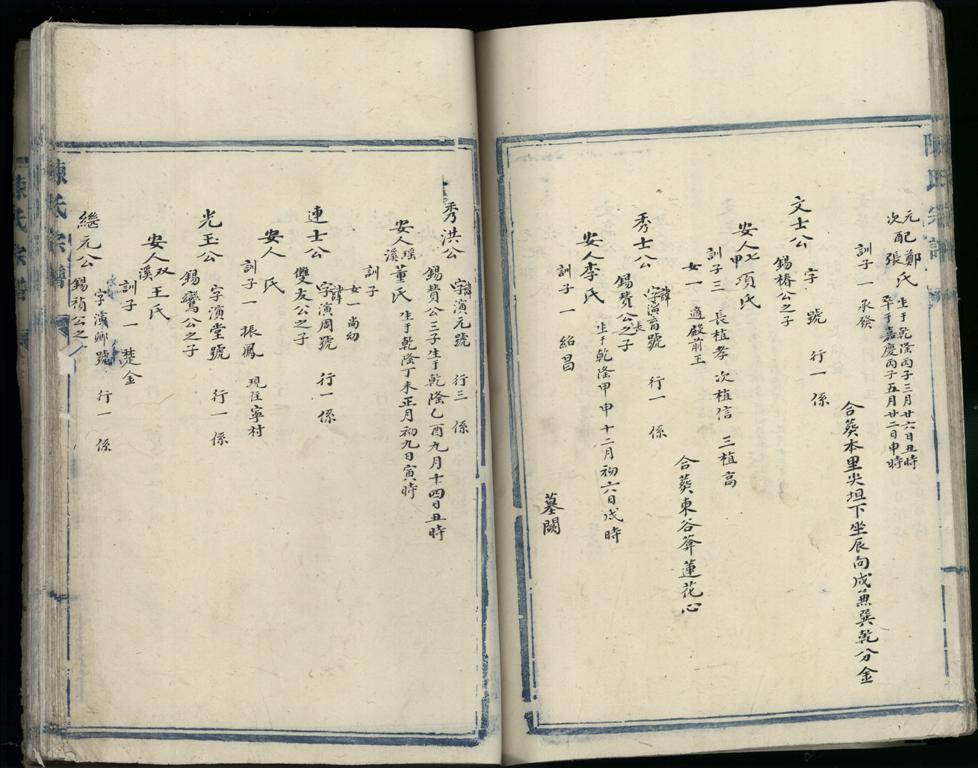 陳氏宗譜
元配鄭氏 生于乾隆丙子三月廿六日丑時
次張 卒于嘉慶丙子五月廿二日申時
訓子一 承發
合葵本里尖坦下坐辰向戍兼巽乾分金
文士公 字 號 行一 係
錫椿公之子
安人七甲項氏
訓子三 長植孝 次植信 三植高
女一 適殿前王
合葵東谷葊蓮花心
秀士公 諱 字演畜號 行一 係
錫贊公之長子
安人李氏 生于乾隆甲申十二月初六日戌時
訓子一 紹昌
墓闕
秀洪公 諱 字演元號 行三 係
錫贊公三子生于乾隆乙酉九月十四日丑時
安人瑶溪董氏 生于乾隆丁未正月初九日寅時
訓子
女一 尚幼
連士公 諱 字演周號 行一 係
雙友公之子
安人 氏
訓子一 振鳳 現住寧村
光玉公 字演堂號 行一 係
錫鸞公之子
安人双溪王氏
訓子一 楚金
繼元公 字演卿號 行一 係
錫禎公之
陳氏宗譜
陳氏宗譜